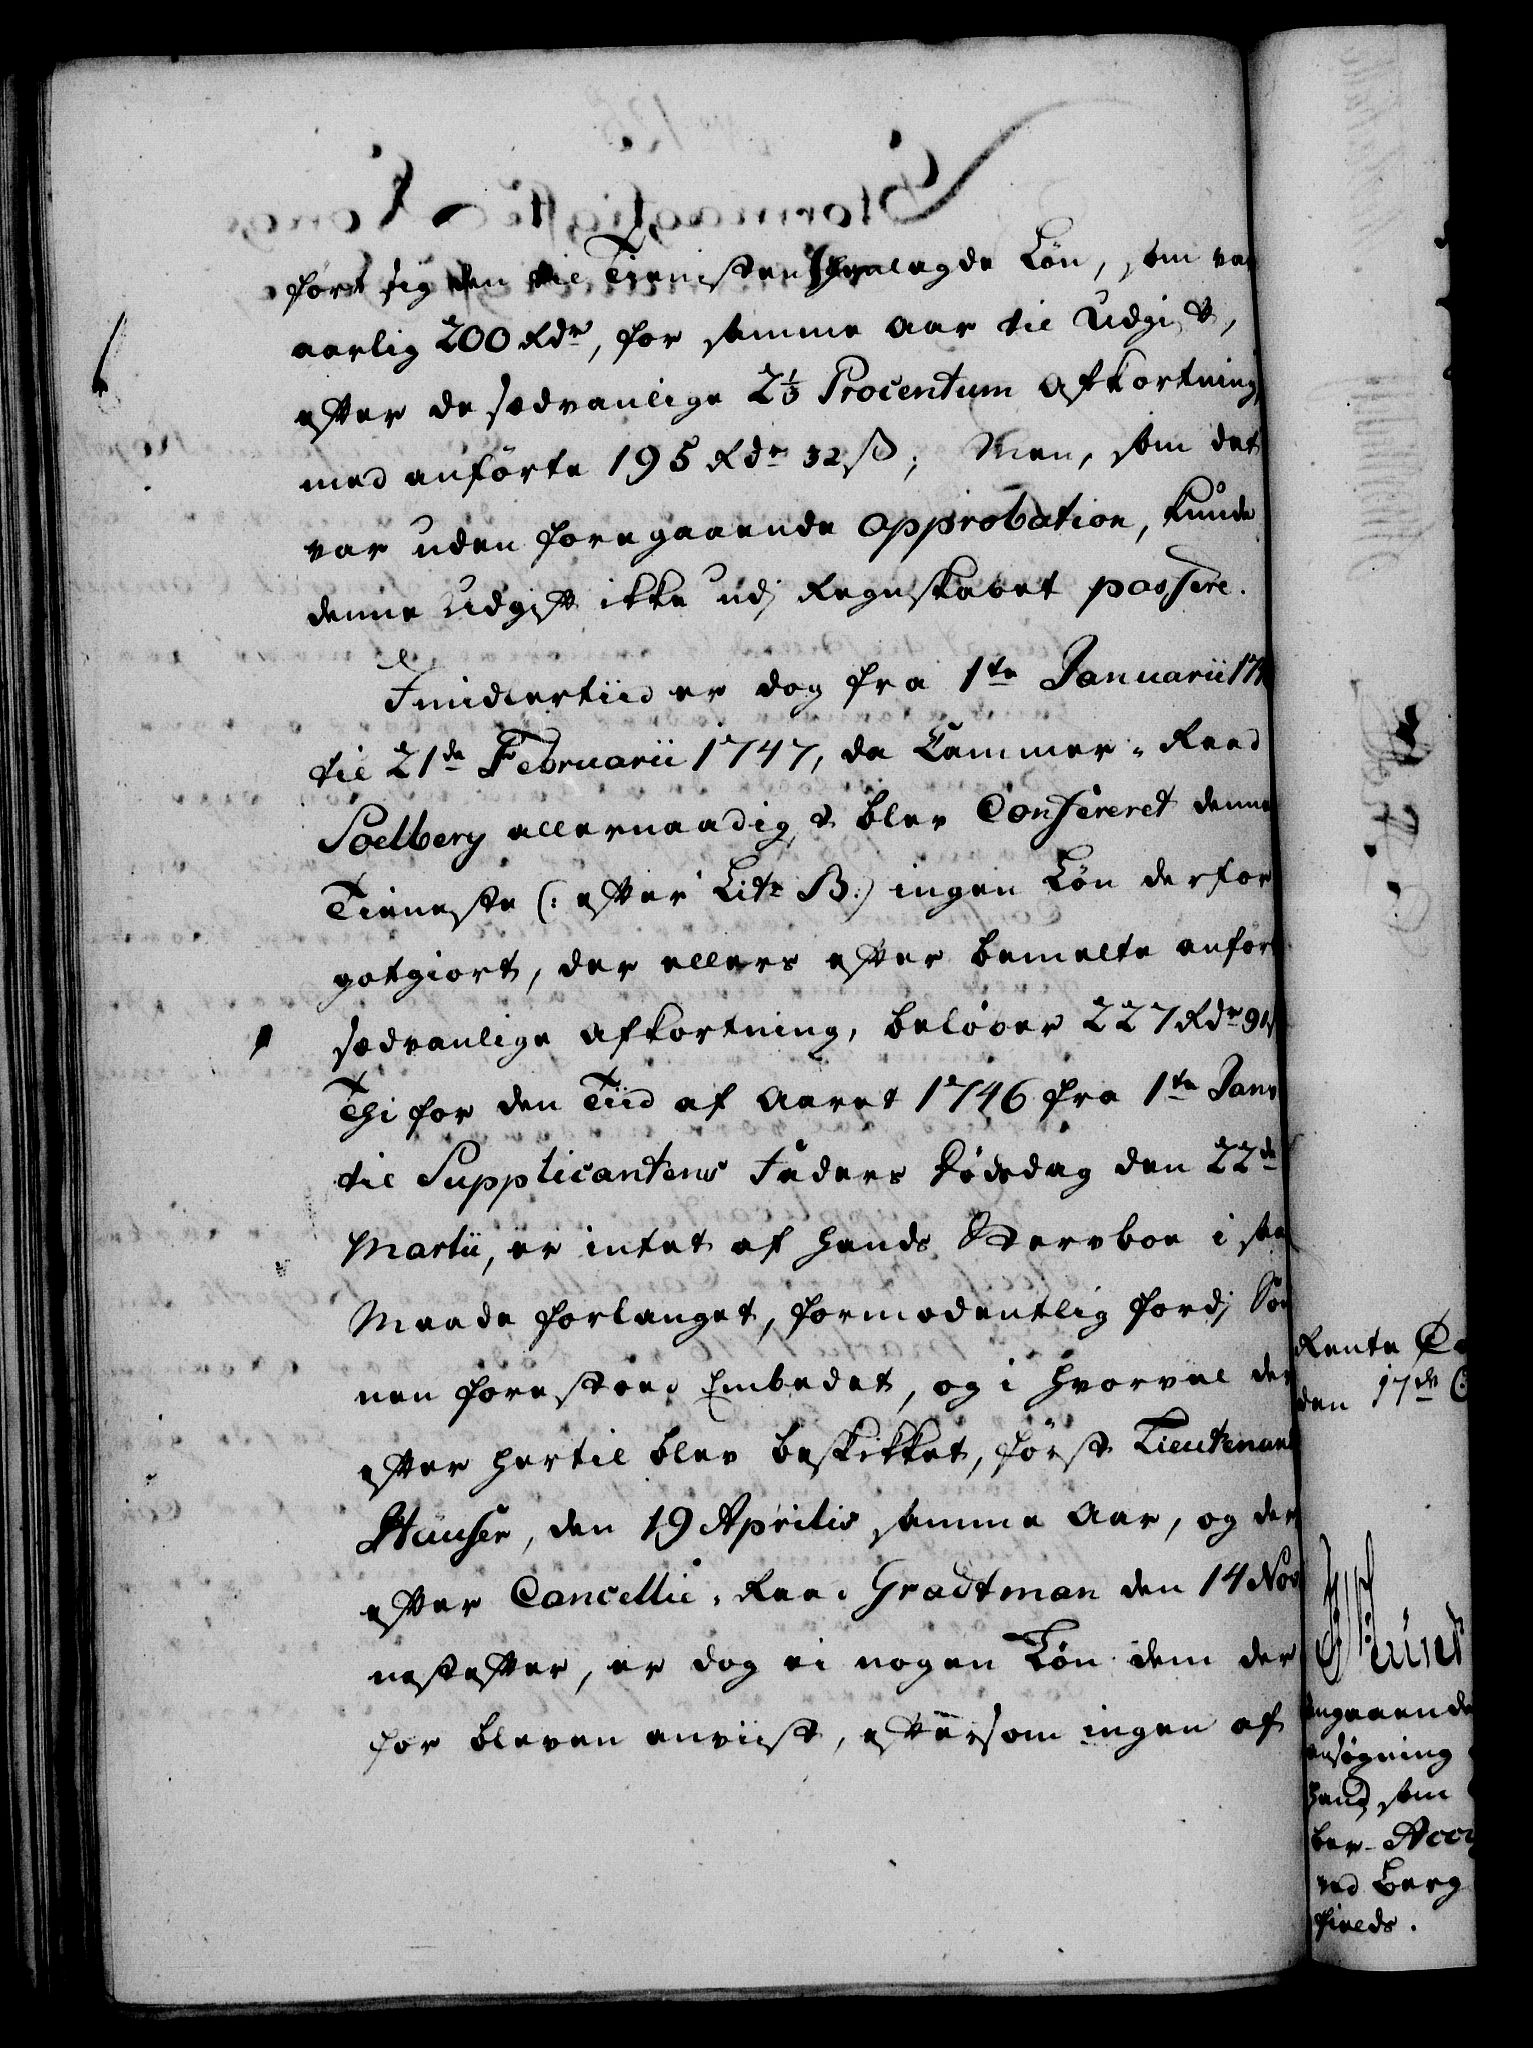 ført sig den til Tienisten henlagde Løn, som var
aarlig 200 Rdr, for samme Aar til Udgift,
efter de sædvanlige 2⅓ Procentum Afkortning,
med anførte 195 Rdr 32 ß; Men, som det
var uden foregaaende Approbation, kunde
denne Udgift ikke udj Regnskabet passere.
Imidlertiid er dog fra 1te Januarii 174
til 21de Februarii 1747, da Cammer-Raad
Soelberg allernaadigst blev Confereret denne
Tieneste (: efter Litr B:) ingen Løn derfor
gotgiort, der ellers efter bemelte anført
sædvanlige Afkortning, beløber 227 Rdr 91
Thi for den Tiid af Aaret 1746 fra 1te Janv
til Supplicantens Faders Dødsdag den 22de
Martii, er intet af hands Sterfboe i saa
Maade forlanget, formodentlig fordj Søn
nen forestoed Embedet, og i hvorvel der
efter hertil blev beskikket, først Lieutenant
Hauser, den 19 Aprilis samme Aar, og der
efter Cancellie-Raad Gradtman den 14 Nov
nestefter, er dog ei nogen Løn dem der
for bleven anviist, eftersom ingen af
Rente
den 17de
angaaende
ansøgning
hand som
ber-
ved Berg
fields.